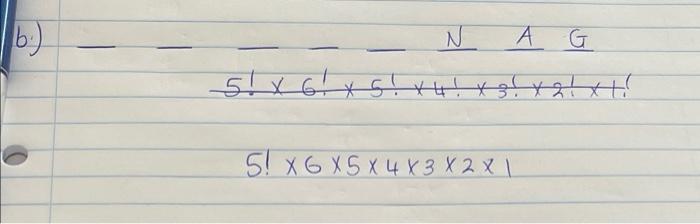 b.) _ _ _ _ _ N A G
5! × 6! × 5! × 4! × 3! × 2! × 1!
5! × 6 × 5 × 4 × 3 × 2 × 1